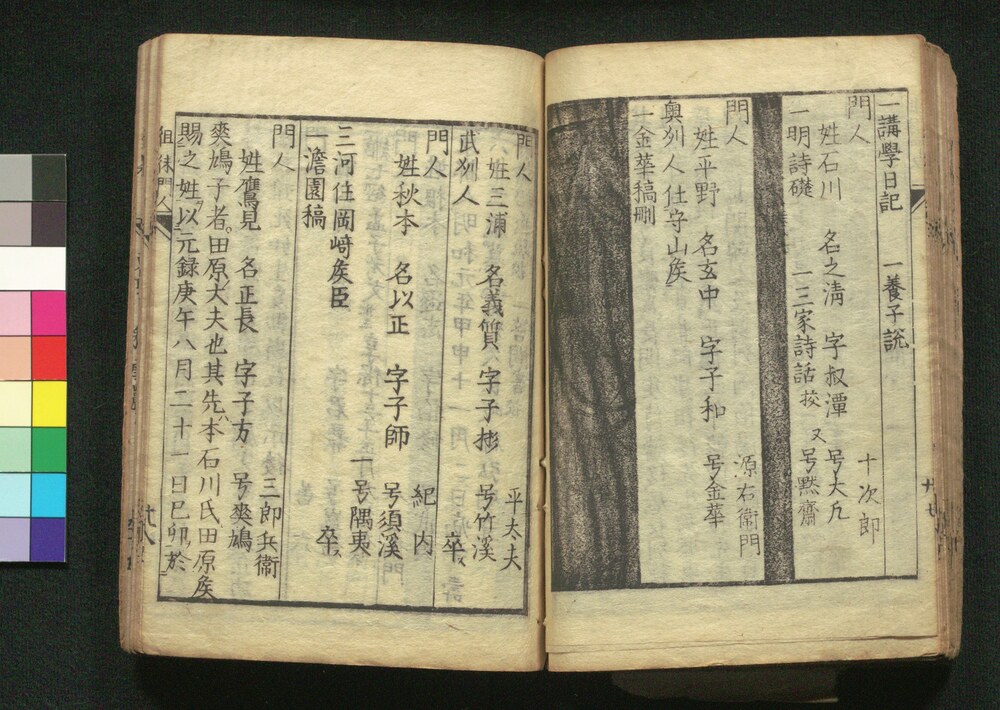 一講學日記　一養子說
門人　十次郎
姓石川　名之清　字叔潭　号大凡
又号黙齋
一明詩礎　一三家詩話挍
門人　源右衞門
姓平野　名玄中　字子和　号金華
奥刕人仕守山矦
一金華稿刪
門人　平太夫
姓三浦　名義質　字子彬　号竹溪
武刕人明和元年甲申十一月二日卒
門人　紀内
姓秋本　名以正　字子師　号須溪
一号隅夷
三河住岡﨑矦臣　卒
一澹園稿
門人　三郎兵衞
姓鷹見　名正長　字子方　号爽鳩
爽鳩子者田原大夫也其先本石川氏田原矦
賜之姓以元録庚午八月二十一日己卯於
徂徠門人